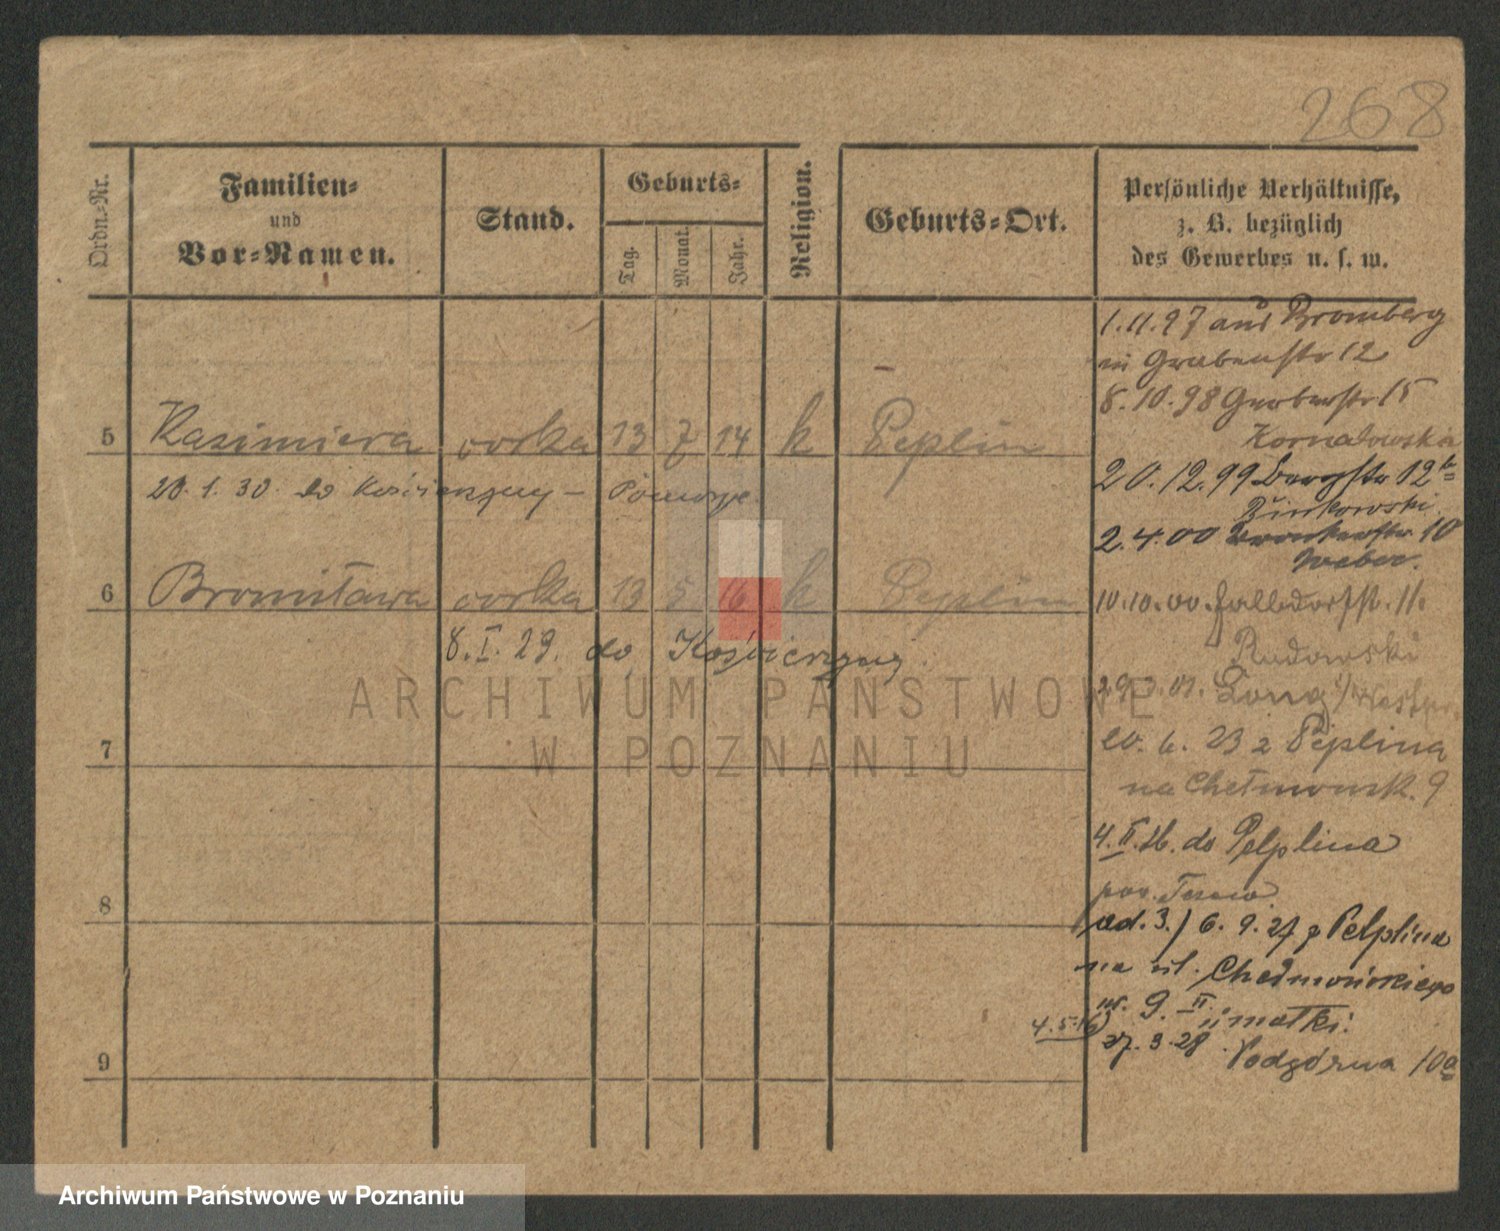 268
Ordn.-Nr.
Familien-
und
Vor-Namen.
Stand.
Geburts-
Tag.
Monat.
Jahr.
Religion.
Geburts-Ort.
Persönliche Verhältnisse,
z. B. bezüglich
des Gewerbes u. s. w.
1.11.97 aus Bromberg
in Grabenstr 12
8.10.98 Gerberstr 15
Kornatowska
5 Kazimiera corka 13 7 14 k Peplin
20.12.99 Bergstr 12
28.1.30. do Kościerzyny – Pomorze.
Zinkowski.
2.4.00 10
Weber.
6 Bronisława corka 13 5 16 k Peplin
10.10.00. Halbdorfst. 11.
8.I.29. do Kościerzyny.
Rudowski
01. Long /Westpr.
ARCHIWUM PAŃSTWOWE
W POZNANIU
20.6.23 z Peplina
7
na Chełmonsk. 9
4.II.26. do Pelplina
pow. Tczew.
8
ad.3./ 6.9.27 z Pelplina
na ul. Chełmońskiego
nr. 9. II
u matki.
4.5.16)
27.3.28. Podgórna 10a
9
Archiwum Państwowe w Poznaniu